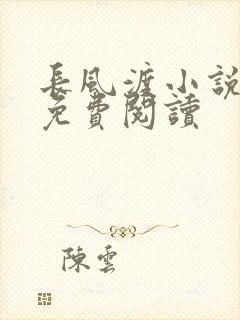 長風渡小說
免費閱讀
陳雲